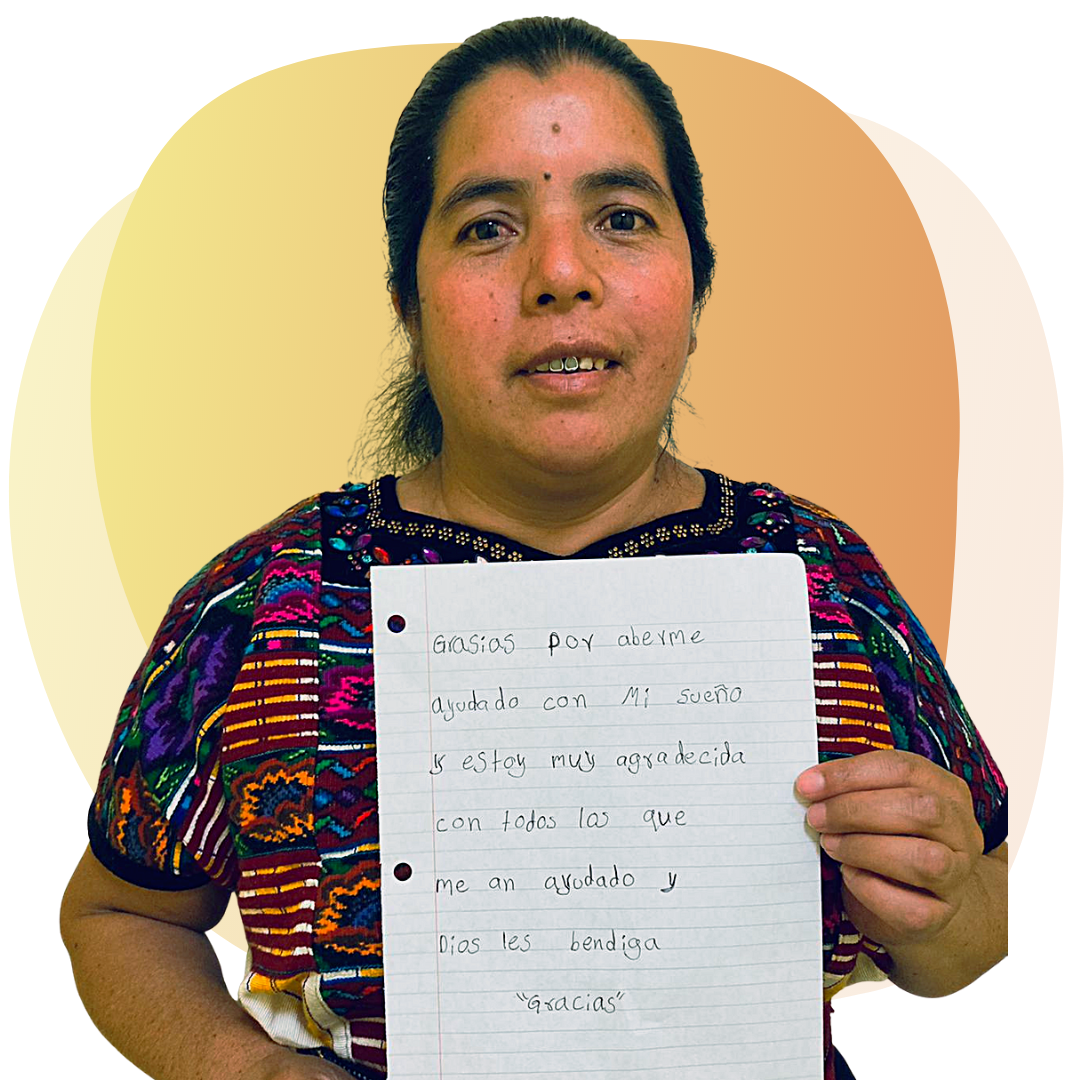 Grasias por aberme
ayudado con Mi sueño
y estoy muy agradecida
con todos los que
me an ayudado y
Dios les bendiga
"Gracias"